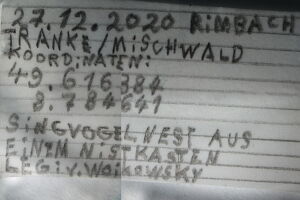 27.12.2020 RIMBACH
TRANKE/MISCHWALD
KOORDINATEN:
49.616384
8.784641
SINGVOGELNEST AUS
EINEM NISTKASTEN
LEGIV.WOIKOWSKY